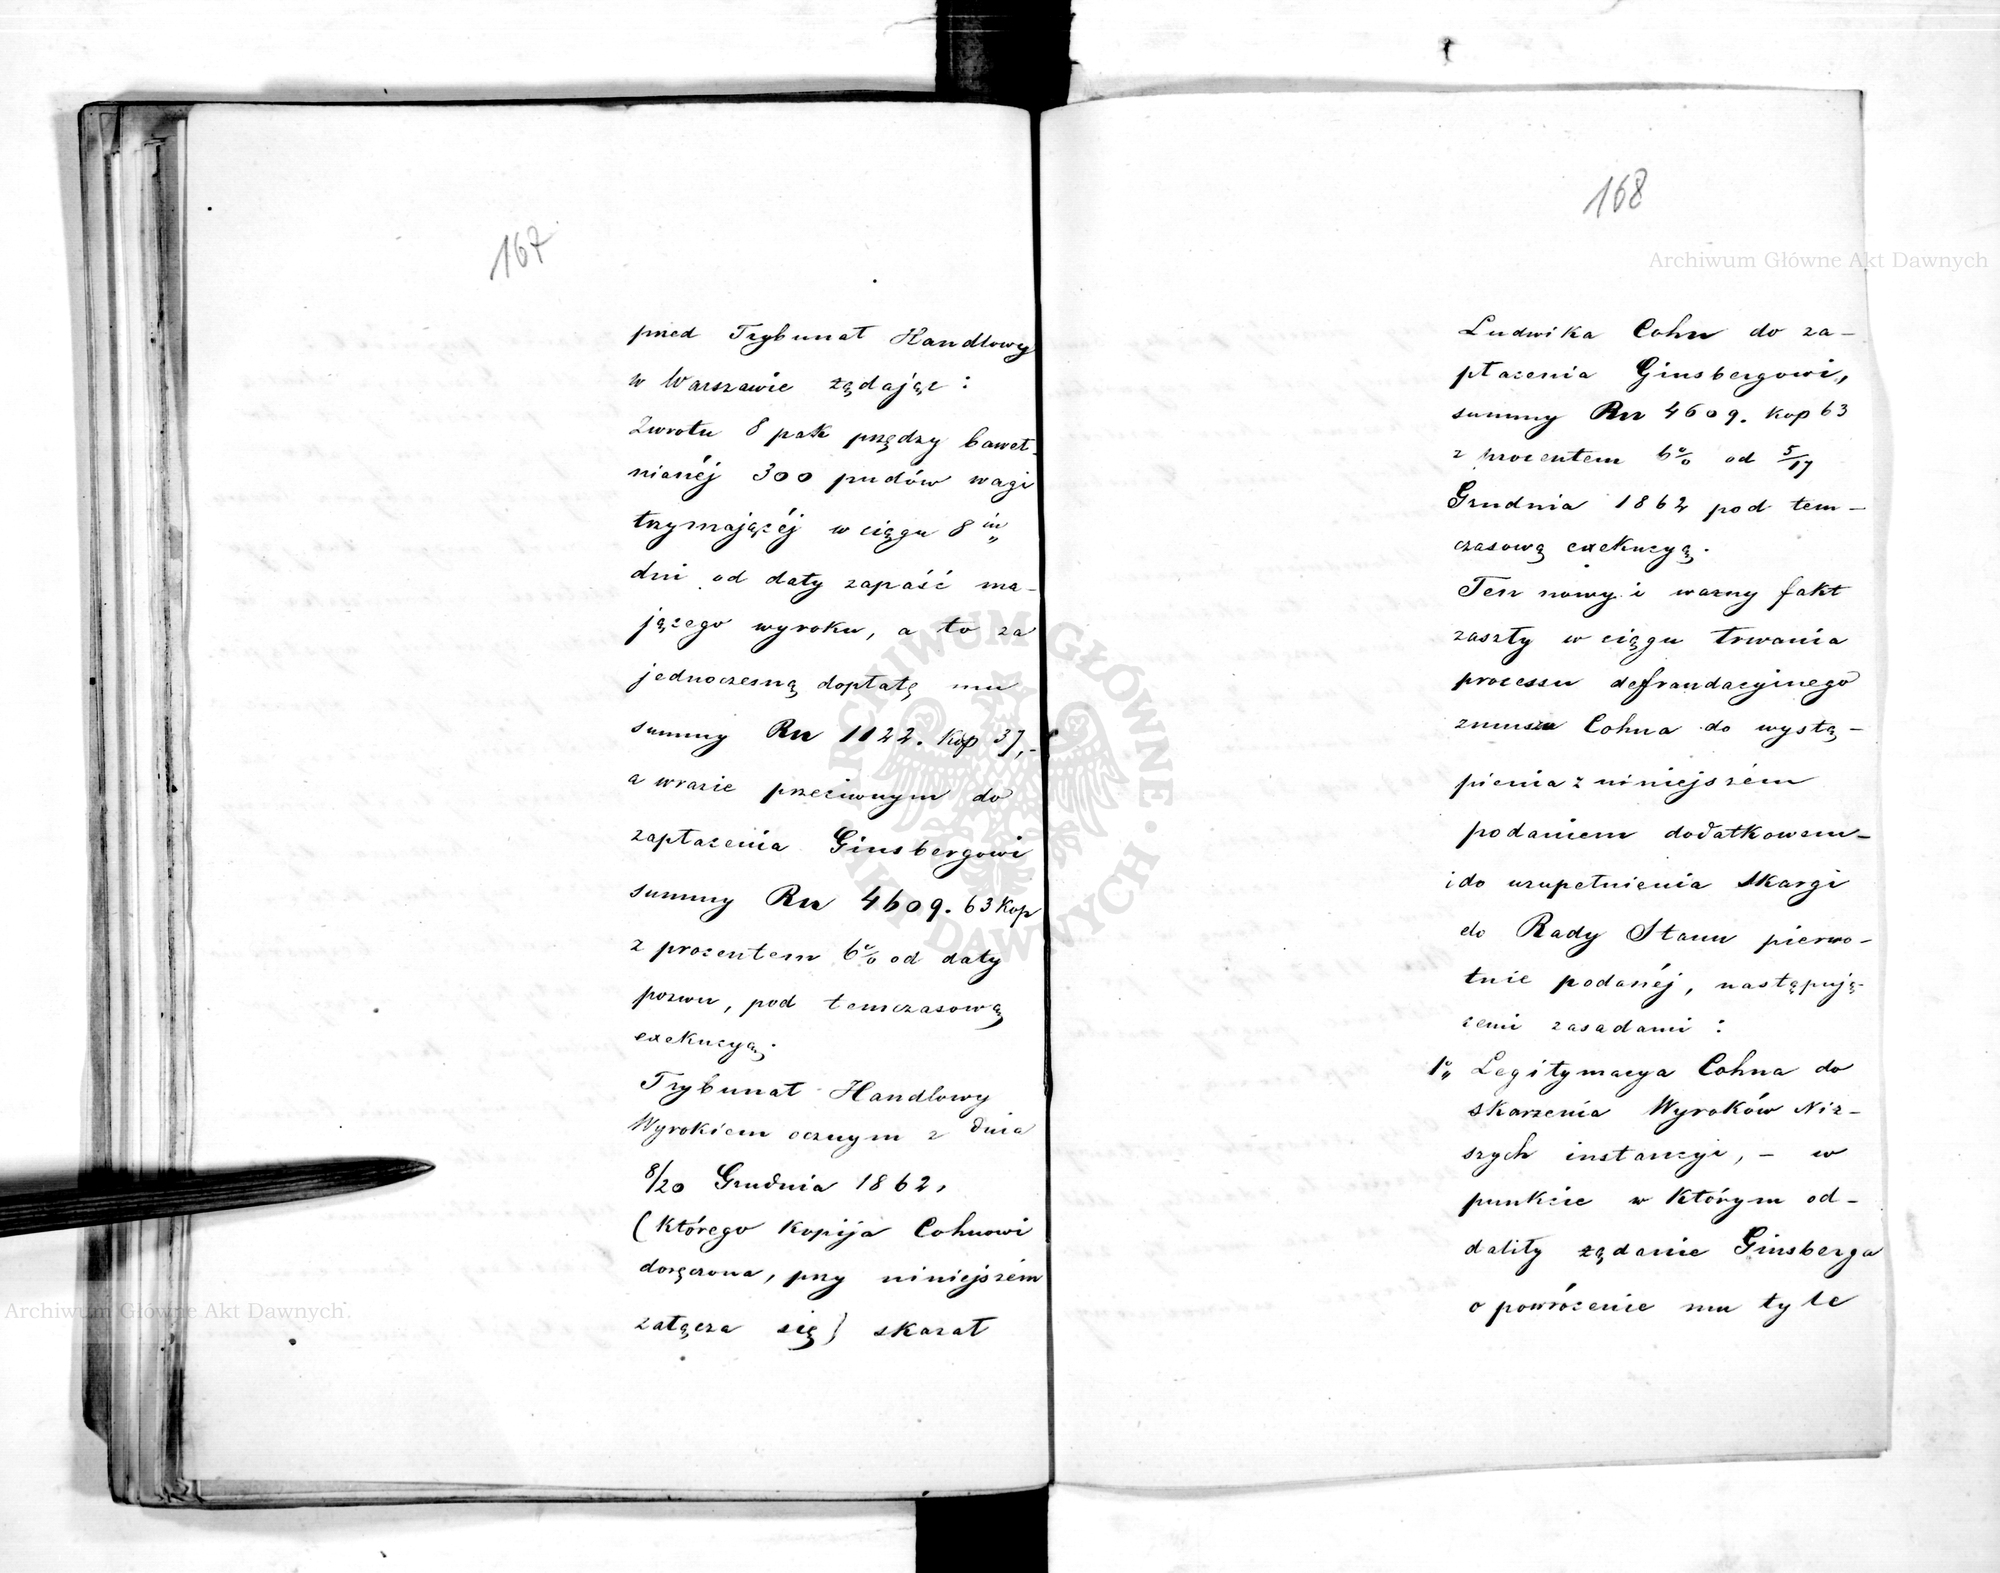 167
przed Trybunał Handlowy
w Warszawie żądając :
Zwrotu 8 pak przędzy baweł-
nianéj 300 pudów wagi
trzymającéj w ciągu 8 iu„
dni od daty zapaść ma-
jącego wyroku, a to za
jednoczesną dopłatą mu
summy Rsr 1122. Kop 37,-
a wrazie przeciwnym do
zapłacenia Ginsbergowi
summy Rsr 4609. 63 Kop
z procentem 6% od daty
pozwu, pod temczasową
exekucyą.
Trybunał Handlowy
Wyrokiem ocznym z dnia
8/20 Grudnia 1862,
(którego Kopija Cohnowi
doręczona, przy niniejszém
załącza się) skazał
168
Ludwika Cohn do za-
płacenia Ginsbergowi,
summy Rsr 4609. Kop 63
z procentem 6% od 5/17
Grudnia 1862 pod tem-
czasową exekucyą.
Ten nowy i ważny fakt
zaszły w ciągu trwania
processu defraudacyjnego
zmusza Cohna do wystą-
pienia z niniejszém
podaniem dodatkowem-
i do uzupełnienia skargi
do Rady Stanu pierwo-
tnie podanéj, następują-
cemi zasadami :
1o„ Legitymacya Cohna do
skarżenia Wyroków Niż-
szych instancyi, - w
punkcie w którym od-
daliły żądanie Ginsberga
o powrócenie mu tyle
Archiwum Główne Akt Dawnych
Archiwum Główne Akt Dawnych.
ARCHIWUM GŁÓWNE · AKT DAWNYCH ·